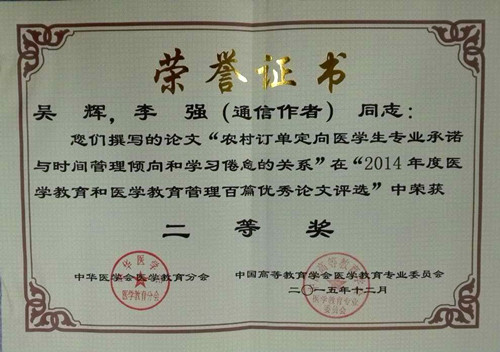 荣誉证书
吴 辉,李 强(通信作者) 同志:
您们撰写的论文“农村订单定向医学生专业承诺
与时间管理倾向和学习倦怠的关系”在“2014年度医
学教育和医学教育管理百篇优秀论文评选”中荣获
二 等 奖
中华医学会医学教育分会
中国高等教育学会医学教育专业委员会
二〇一五年十二月
医学教育分会
医学教育专业
委员会